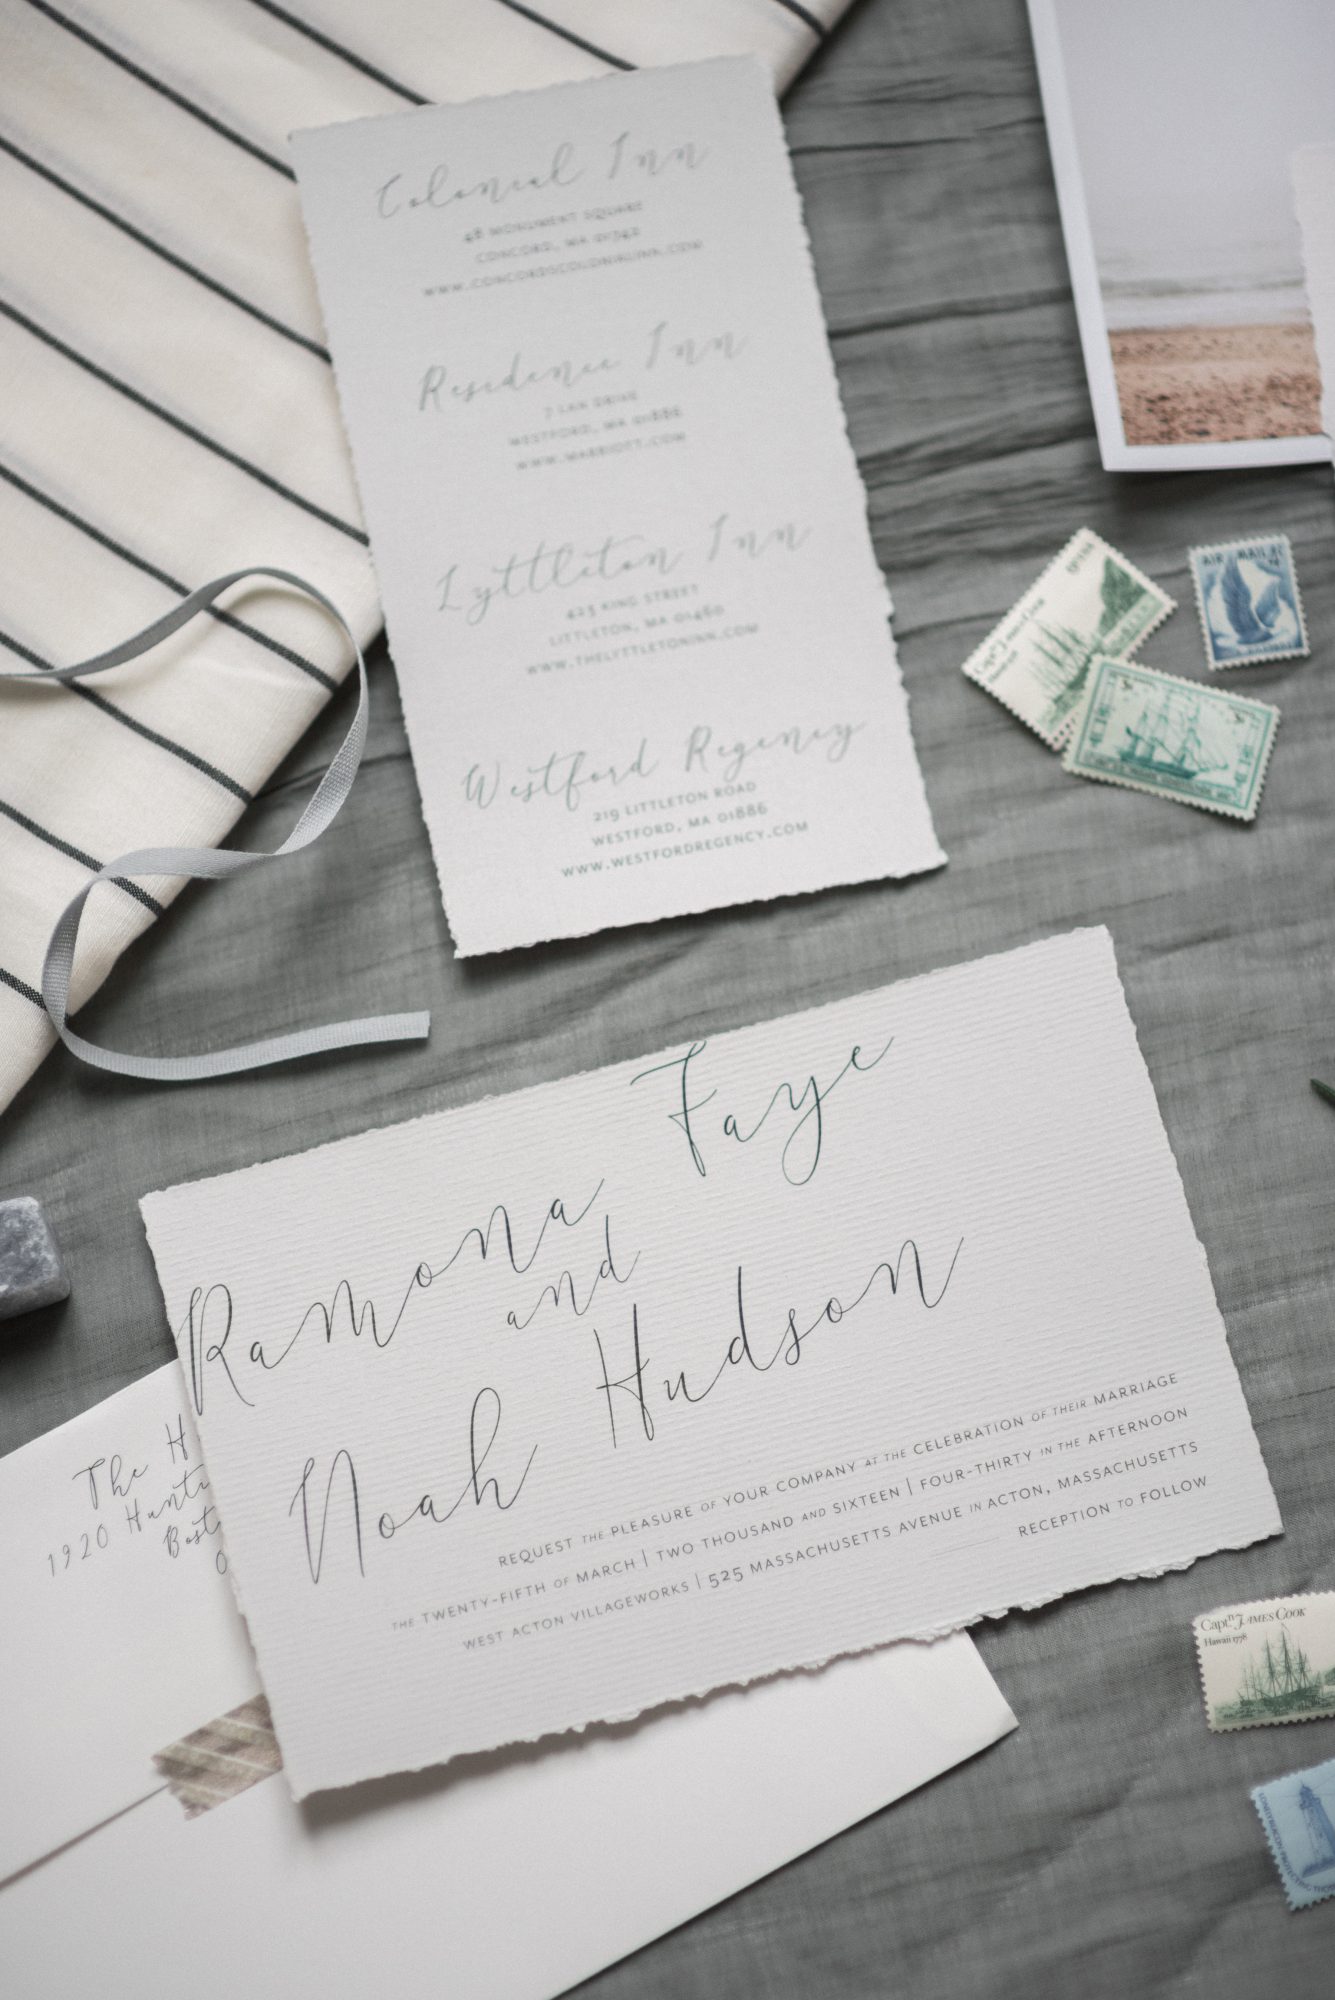 Colonial Inn
48 MONUMENT SQUARE
CONCORD, MA 01742
WWW.CONCORDSCOLONIALINN.COM
Residence Inn
7 LAN DRIVE
WESTFORD, MA 01886
WWW.MARRIOTT.COM
Lyttleton Inn
423 KING STREET
LITTLETON, MA 01460
WWW.THELYTTLETONINN.COM
Westford Regency
219 LITTLETON ROAD
WESTFORD, MA 01886
WWW.WESTFORDREGENCY.COM
AIR MAIL
Ramona Faye
and
Noah Hudson
REQUEST THE PLEASURE OF YOUR COMPANY AT THE CELEBRATION OF THEIR MARRIAGE
THE TWENTY-FIFTH OF MARCH | TWO THOUSAND AND SIXTEEN | FOUR-THIRTY IN THE AFTERNOON
WEST ACTON VILLAGEWORKS | 525 MASSACHUSETTS AVENUE IN ACTON, MASSACHUSETTS
RECEPTION TO FOLLOW
The H
1920 Hunti
Bost
Captⁿ JAMES COOK
Hawaii 1778